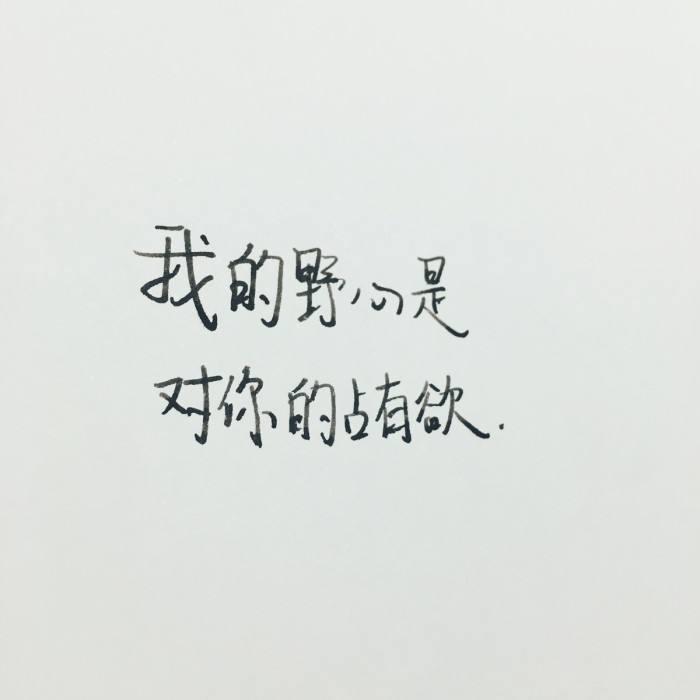 我的野心是
对你的占有欲.